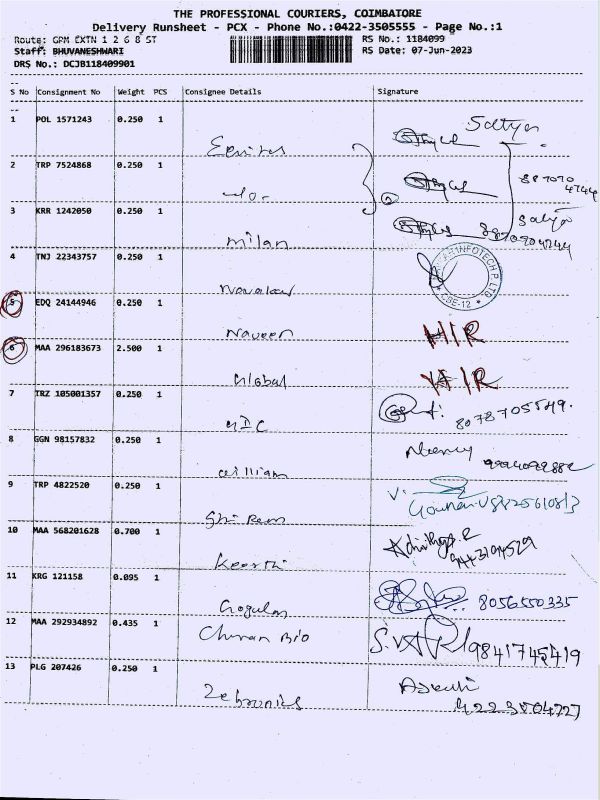 THE PROFESSIONAL COURIERS, COIMBATORE
Delivery Runsheet - PCX - Phone No.:0422-3505555 - Page No.:1
Route: GPM EXTN 1 2 6 8 ST
RS No.: 1184099
Staff: BHUVANESHWARI
RS Date: 07-Jun-2023
DRS No.: DCJB118409901
S No Consignment No Weight PCS Consignee Details Signature
1 POL 1571243 0.250 1
Sathya
2 TRP 7524868 0.250 1
3 KRR 1242050 0.250 1
Milan
4 TNJ 22343757 0.250 1
INFOTECH P. LTD
CBE-12
5 EDQ 24144946 0.250 1
Naveen
6 MAA 296183673 2.500 1
Global
7 TRZ 105001357 0.250 1
8078705549.
8 GGN 98157832 0.250 1
William
9 TRP 4822520 0.250 1
Shri Ram
10 MAA 568201628 0.700 1
Keerthi
11 KRG 121158 0.095 1
Gogulan 8056550335
12 MAA 292934892 0.435 1
Churan Bio 9841745419
13 PLG 207426 0.250 1
Zebronics